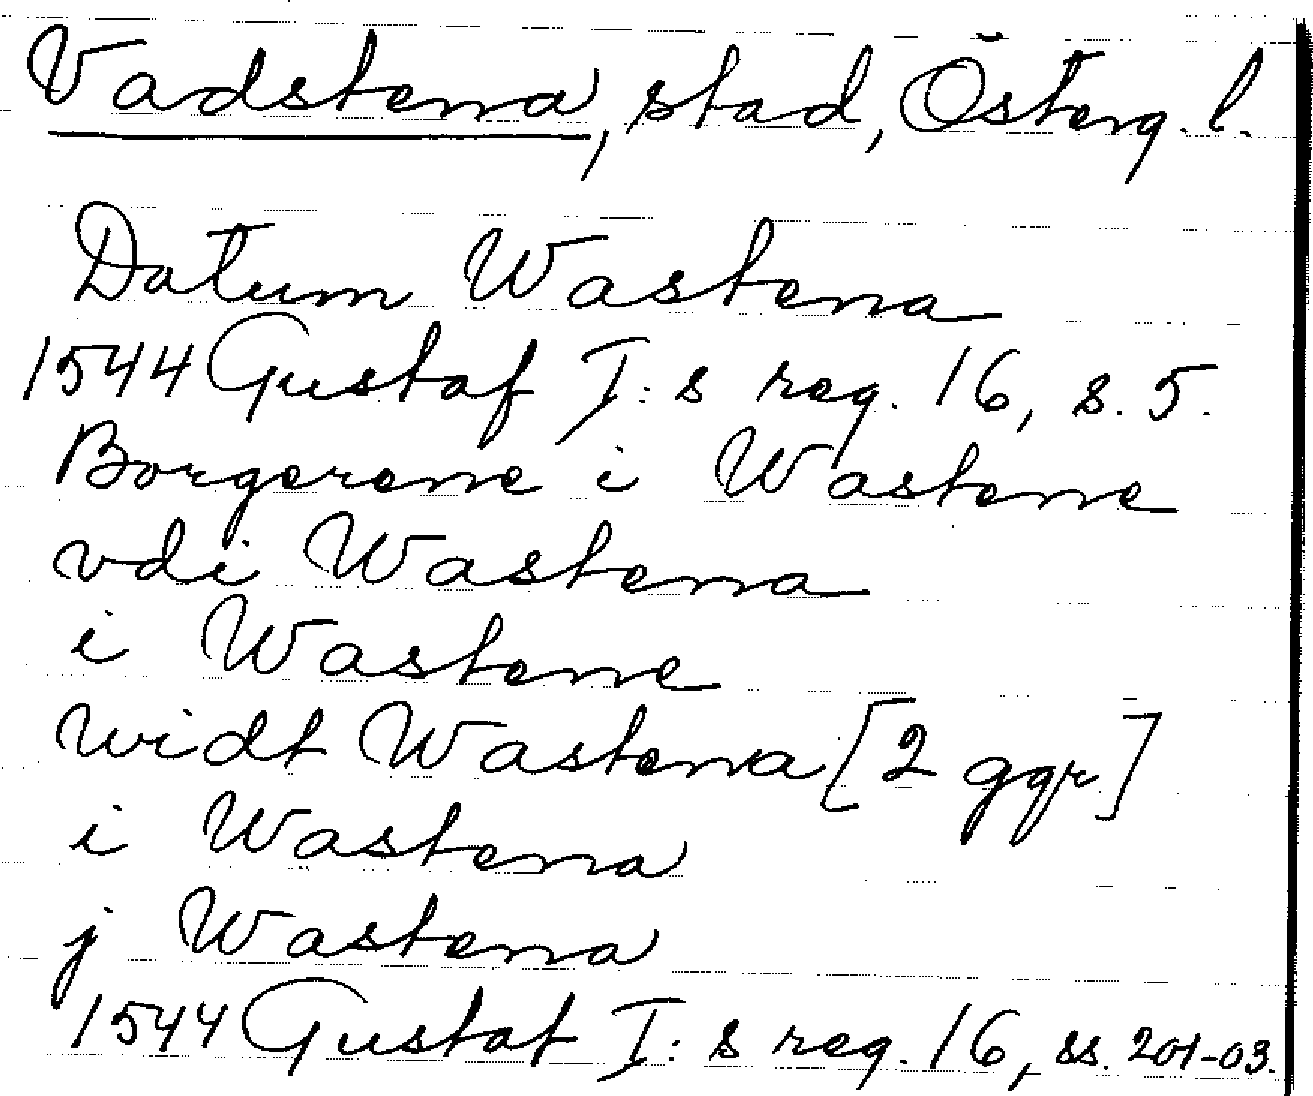 Vadstena, stad, Österg. l.
Datum Wastena
1544 Gustaf I:s reg. 16, s. 5.
Borgerene i Wastene
vdi Wastena
i Wastene
widt Wastena [2 ggr]
i Wastena
j Wastena
1544 Gustaf I:s reg. 16, ss. 201-03.